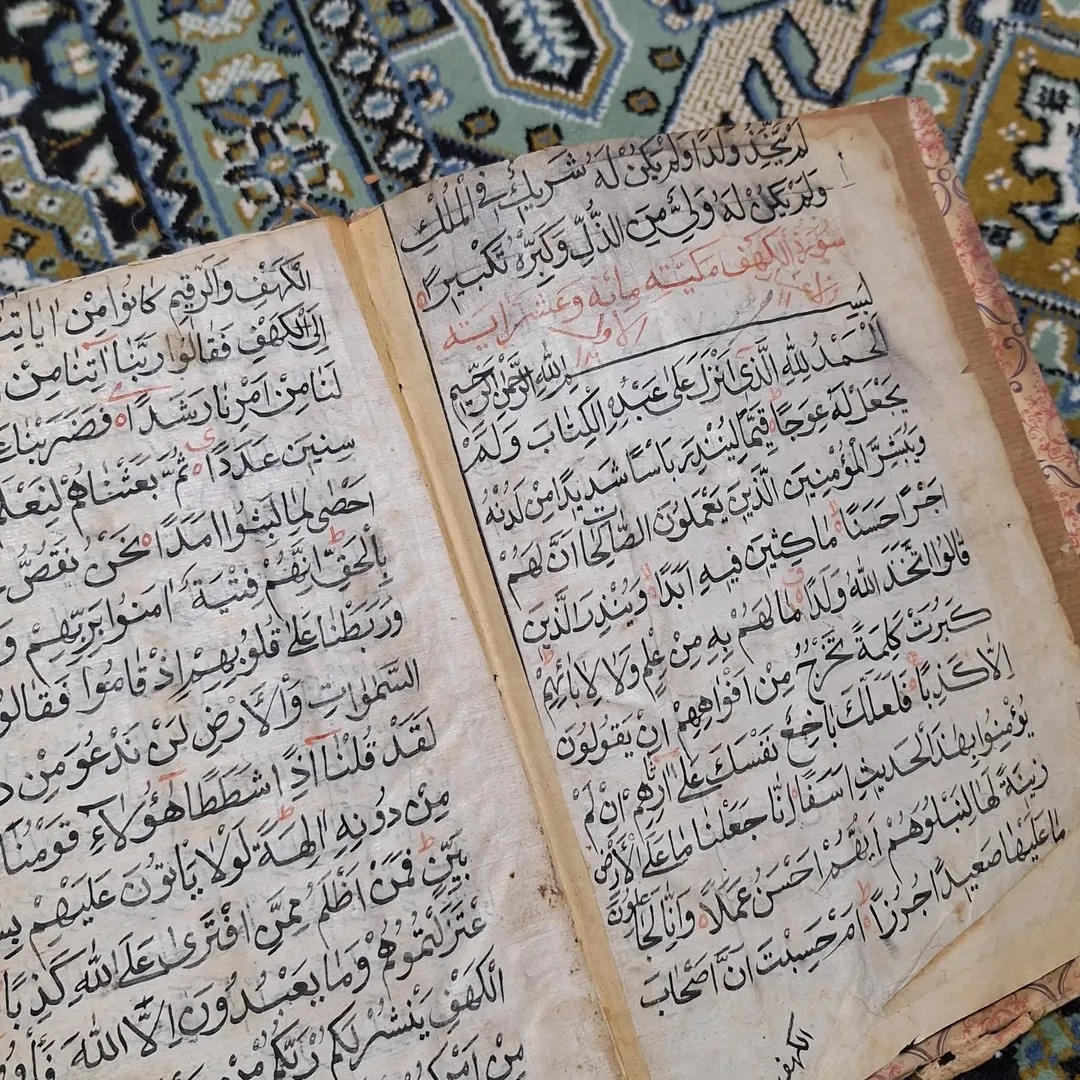 لَمْ يَتَّخِذْ وَلَدًا وَلَمْ يَكُنْ لَهُ شَرِيكٌ فِي الْمُلْكِ
وَلَمْ يَكُنْ لَهُ وَلِيٌّ مِنَ الذُّلِّ وَكَبِّرْهُ تَكْبِيرًا
سورة الكهف مكيته مائه وعشر ايته
بِسْمِ اللهِ الرَّحْمٰنِ الرَّحِيمِ
اَلْحَمْدُ لِلهِ الَّذِى اَنْزَلَ عَلٰى عَبْدِهِ الْكِتَابَ وَلَمْ
يَجْعَلْ لَهُ عِوَجًا قَيِّمًا لِيُنْذِرَ بَأْسًا شَدِيدًا مِنْ لَدُنْهُ
وَيُبَشِّرَ الْمُؤْمِنِينَ الَّذِينَ يَعْمَلُونَ الصَّالِحَاتِ اَنَّ لَهُمْ
اَجْرًا حَسَنًا مَاكِثِينَ فِيهِ اَبَدًا وَيُنْذِرَ الَّذِينَ
قَالُوا اتَّخَذَ اللهُ وَلَدًا مَا لَهُمْ بِهِ مِنْ عِلْمٍ وَلَا لِاٰبَائِهِمْ
كَبُرَتْ كَلِمَةً تَخْرُجُ مِنْ اَفْوَاهِهِمْ اِنْ يَقُولُونَ
اِلَّا كَذِبًا فَلَعَلَّكَ بَاخِعٌ نَفْسَكَ عَلٰى اٰثَارِهِمْ اِنْ لَمْ
يُؤْمِنُوا بِهٰذَا الْحَدِيثِ اَسَفًا اِنَّا جَعَلْنَا مَا عَلَى الْاَرْضِ
زِينَةً لَهَا لِنَبْلُوَهُمْ اَيُّهُمْ اَحْسَنُ عَمَلًا وَاِنَّا لَجَاعِلُونَ
مَا عَلَيْهَا صَعِيدًا جُرُزًا اَمْ حَسِبْتَ اَنَّ اَصْحَابَ
الكهف
الْكَهْفِ وَالرَّقِيمِ كَانُوا مِنْ اٰيَاتِنَا
اِلَى الْكَهْفِ فَقَالُوا رَبَّنَا اٰتِنَا مِنْ
لَنَا مِنْ اَمْرِنَا رَشَدًا فَضَرَبْنَا
سِنِينَ عَدَدًا ثُمَّ بَعَثْنَاهُمْ لِنَعْلَمَ
اَحْصٰى لِمَا لَبِثُوا اَمَدًا نَحْنُ نَقُصُّ
بِالْحَقِّ اِنَّهُمْ فِتْيَةٌ اٰمَنُوا بِرَبِّهِمْ
وَرَبَطْنَا عَلٰى قُلُوبِهِمْ اِذْ قَامُوا فَقَالُوا
السَّمٰوَاتِ وَالْاَرْضِ لَنْ نَدْعُوَ مِنْ
لَقَدْ قُلْنَا اِذًا شَطَطًا هٰؤُلَاءِ قَوْمُنَا
مِنْ دُونِهِ اٰلِهَةً لَوْلَا يَاْتُونَ عَلَيْهِمْ
بَيِّنٍ فَمَنْ اَظْلَمُ مِمَّنِ افْتَرٰى عَلَى اللهِ كَذِبًا
عْتَزَلْتُمُوهُمْ وَمَا يَعْبُدُونَ اِلَّا اللهَ
الْكَهْفِ يَنْشُرْ لَكُمْ رَبُّكُمْ مِنْ
مِنْ اَمْرِكُمْ